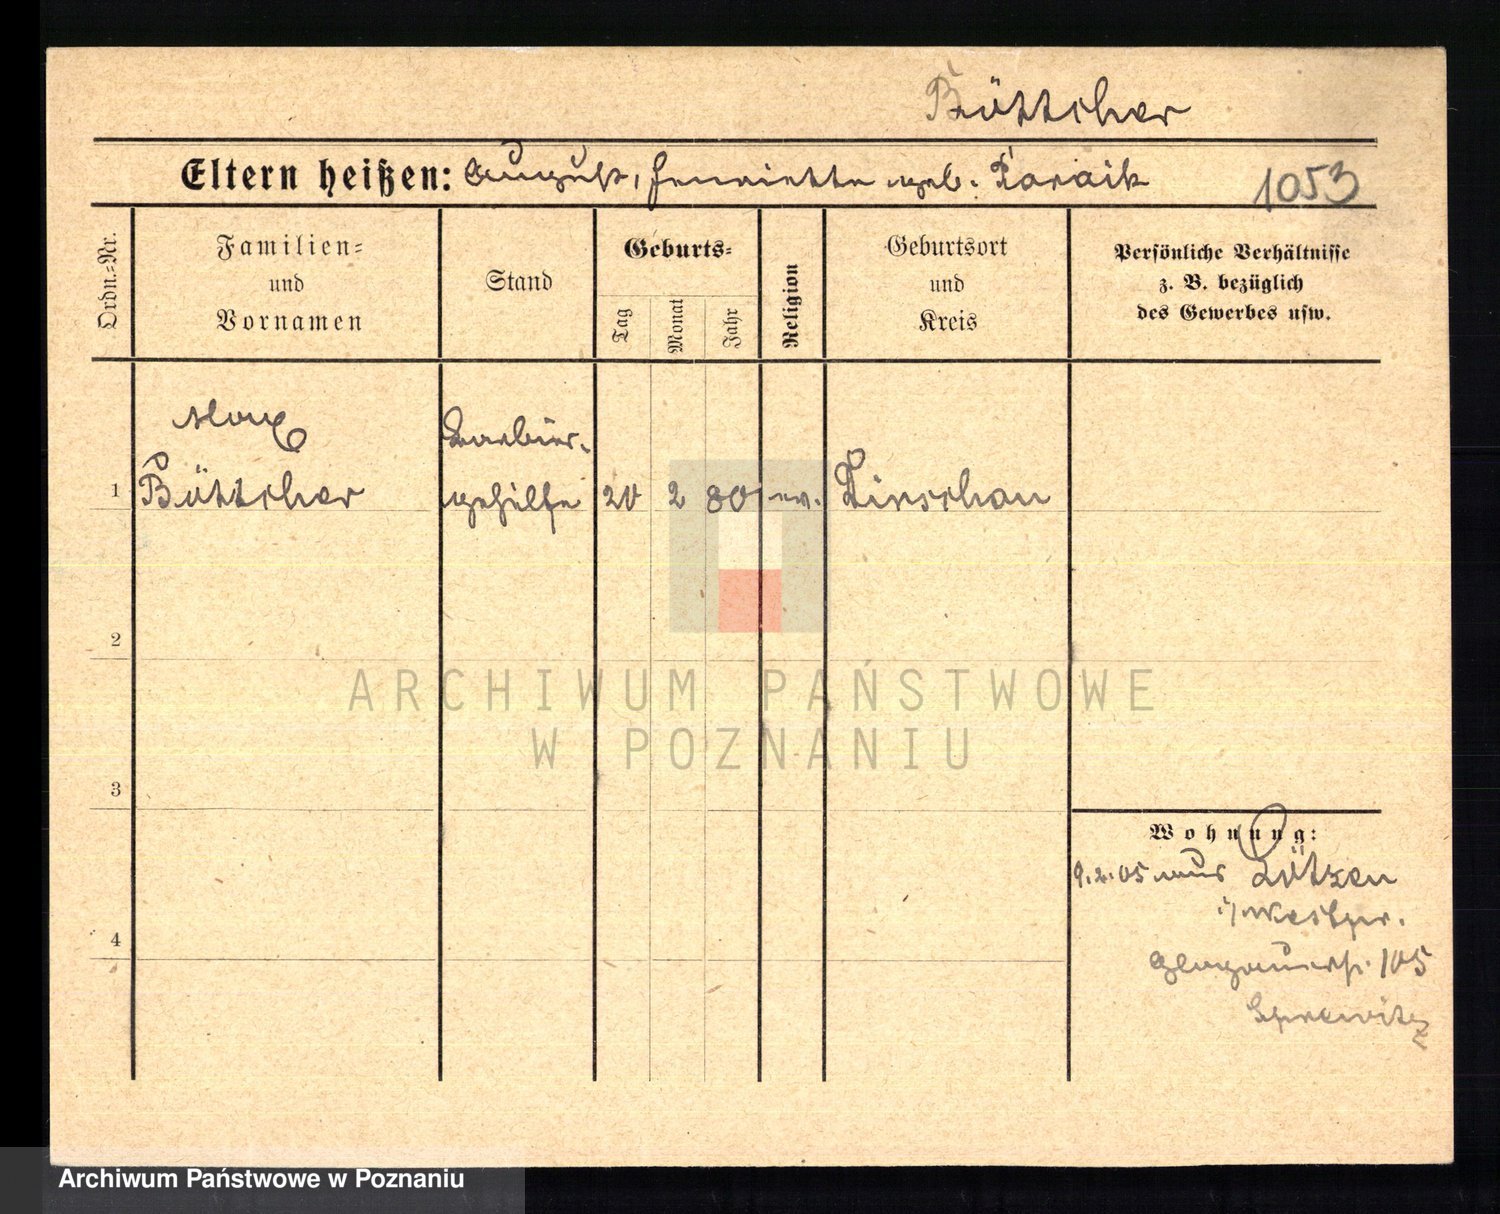 Böttcher
Eltern heißen: August, Henriette geb.
1053
Ordn.=Nr.
Familien=
und
Vornamen
Stand
Geburts=
Tag
Monat
Jahr
Religion
Geburtsort
und
Kreis
Persönliche Verhältnisse
z. B. bezüglich
des Gewerbes usw.
Max
Barbier-
1 Böttcher gehilfe 20 2 80 ev. Dirschau
2
3
4
ARCHIWUM PAŃSTWOWE
W POZNANIU
Wohnung:
9.2.05 aus Lötzen
i/Westpr.
Glogauerstr. 105
Archiwum Państwowe w Poznaniu